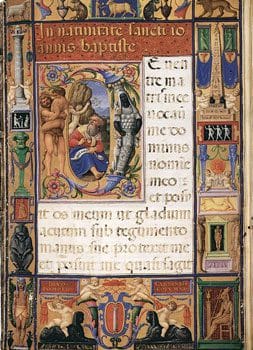 In natiuitate sancti io
annis baptiste
E uen
tre ma
tris mee
uocauit
me do
minus
nomine
meo: et
posu
it os meum ut gladium
acutum sub tegumento
manus sue protexit me
et posuit me quasi sagit